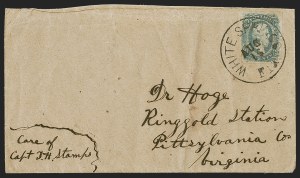 WHITE S
AUG
Dr Hoge
Ringgold Station
Pittsylvania Co
Virginia
Care of
Capt I.H. Stamps